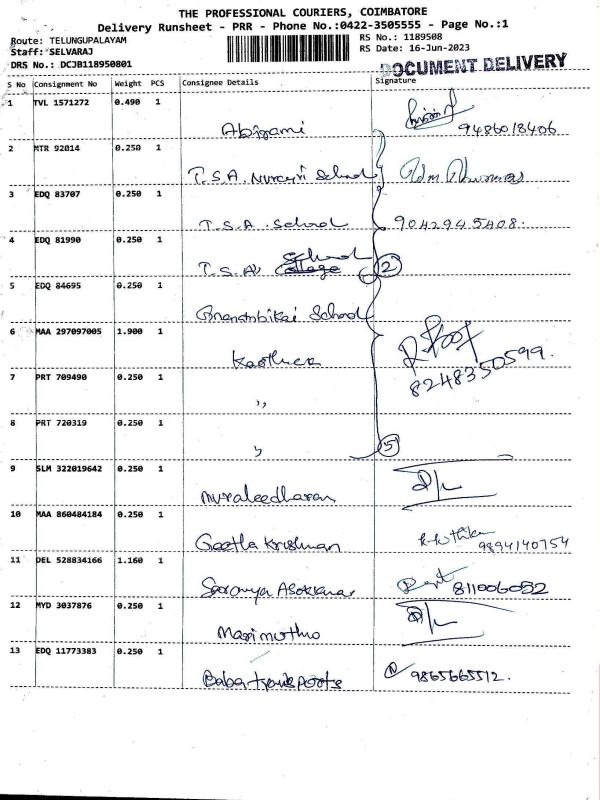 THE PROFESSIONAL COURIERS, COIMBATORE
Delivery Runsheet - PRR - Phone No.:0422-3505555 - Page No.:1
Route: TELUNGUPALAYAM RS No.: 1189508
Staff: SELVARAJ RS Date: 16-Jun-2023
DRS No.: DCJB118950801 DOCUMENT DELIVERY
S No Consignment No Weight PCS Consignee Details Signature
1 TVL 1571272 0.490 1
Abirami 9486018406
2 MTR 92014 0.250 1
T.S.A. Nursery School
3 EDQ 83707 0.250 1
T.S.A. School 9042945408.
4 EDQ 81990 0.250 1
School
T.S.A's College 2
5 EDQ 84695 0.250 1
School
6 MAA 297097005 1.900 1
8248350599.
7 PRT 709490 0.250 1
,,
8 PRT 720319 0.250 1
,, 5
9 SLM 322019642 0.250 1
Muraleedharan
10 MAA 860484184 0.250 1
Geetha Krishnan 9894140754
11 DEL 528834166 1.160 1
Saranya Asokkanar 811006052
12 MYD 3037876 0.250 1
Marimuthu
13 EDQ 11773383 0.250 1
Baba transports 9865665512.